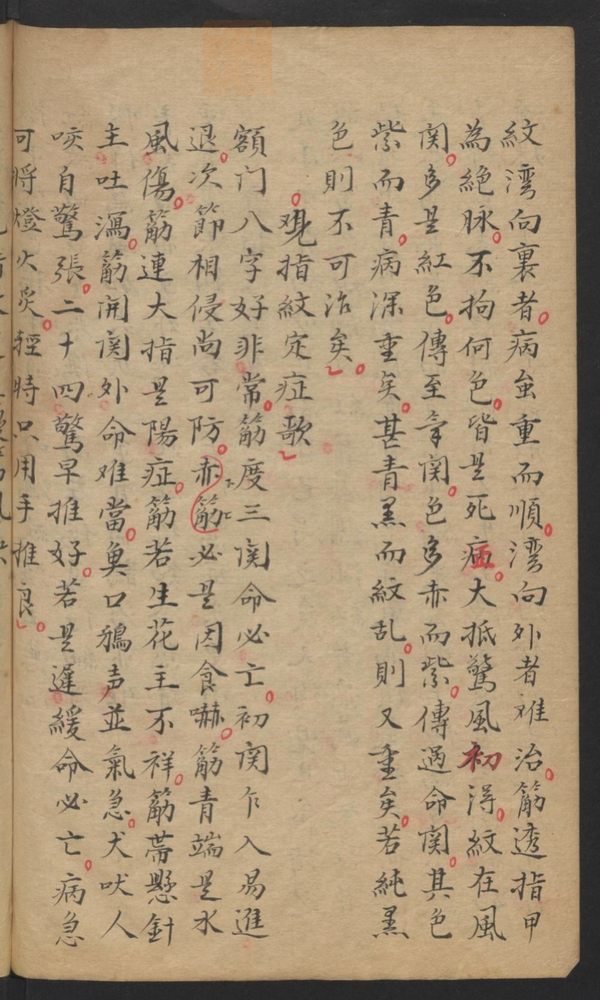 紋湾向裏者病虽重而順湾向外者难治筋透指甲
為絶脉不拘何色皆是死病大抵驚風初得紋在風
関多是紅色傳至氣関色多赤而紫傳過命関其色
紫而青病深重矣甚青黑而紋乱則又重矣若純黑
色則不可治矣
观指紋定症歌
額门八字好非常筋度三関命必亡初関乍入易進
退次節相侵尚可防赤筋必是因食嚇筋青端是水
風傷筋連大指是陽症筋若生花主不祥筋帯懸針
主吐瀉筋開関外命难當奥口鴉声並氣急犬吠人
咬自驚張二十四驚早推好若是遲緩命必亡病急
可將燈火炙輕時只用手推良